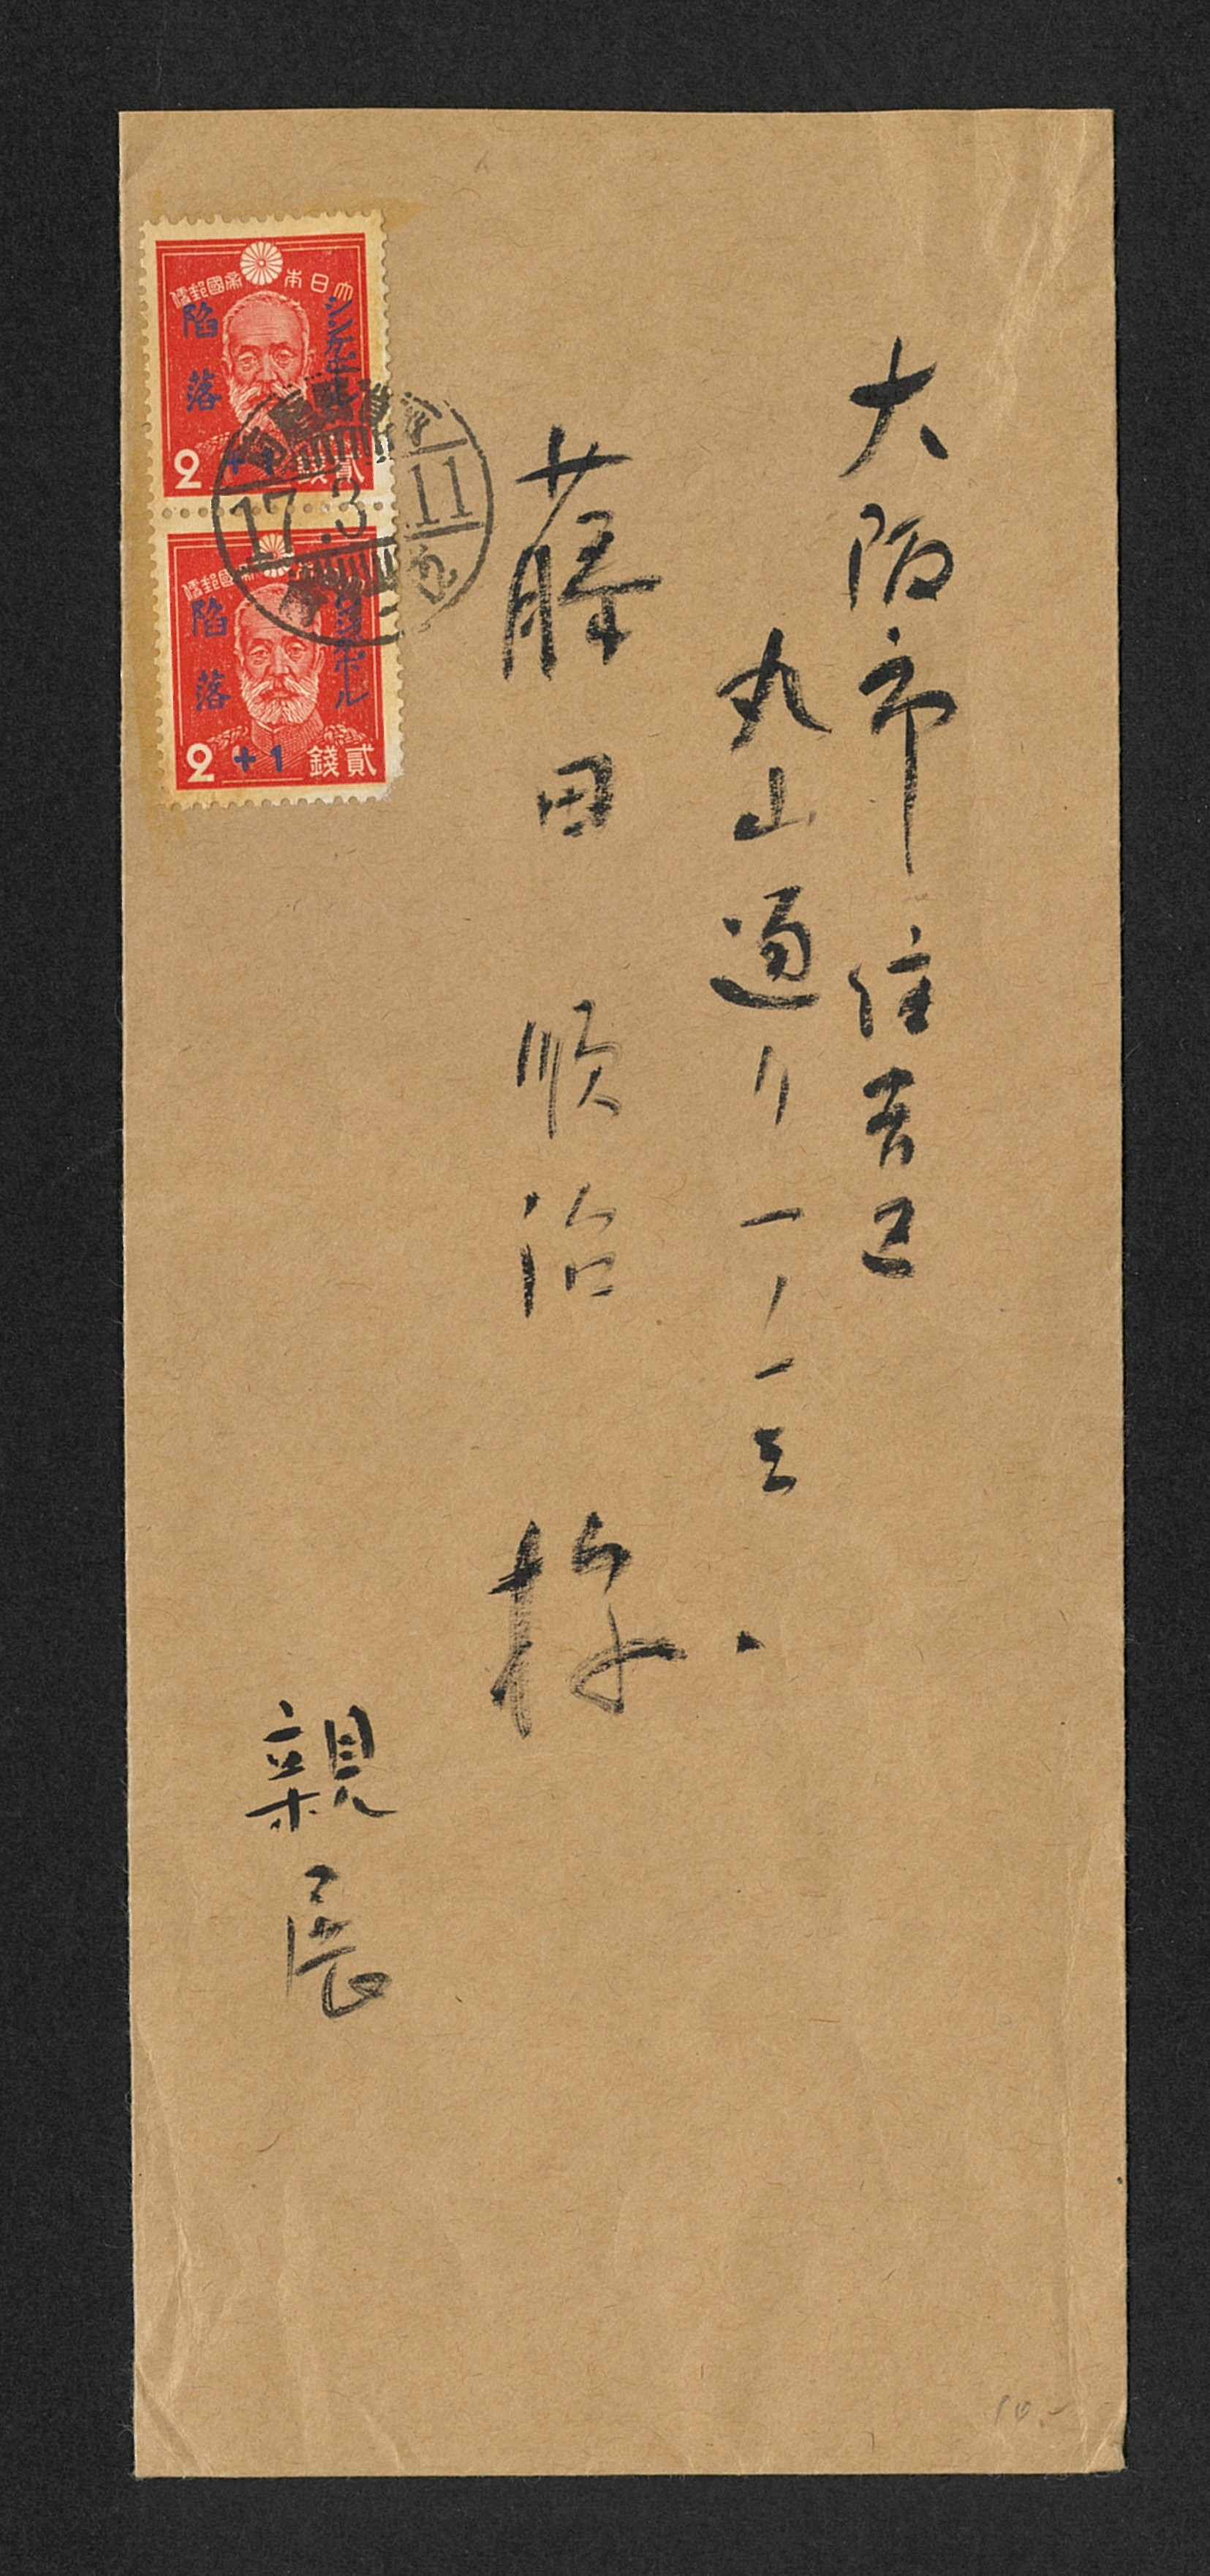 大阪市住吉区
丸山通り一ノ一三
藤田順治様
親展
大日本帝國郵便
シンガポール
陥落
2 +1 貳錢
17.3.11
大日本帝國郵便
シンガポール
陥落
2 +1 貳錢